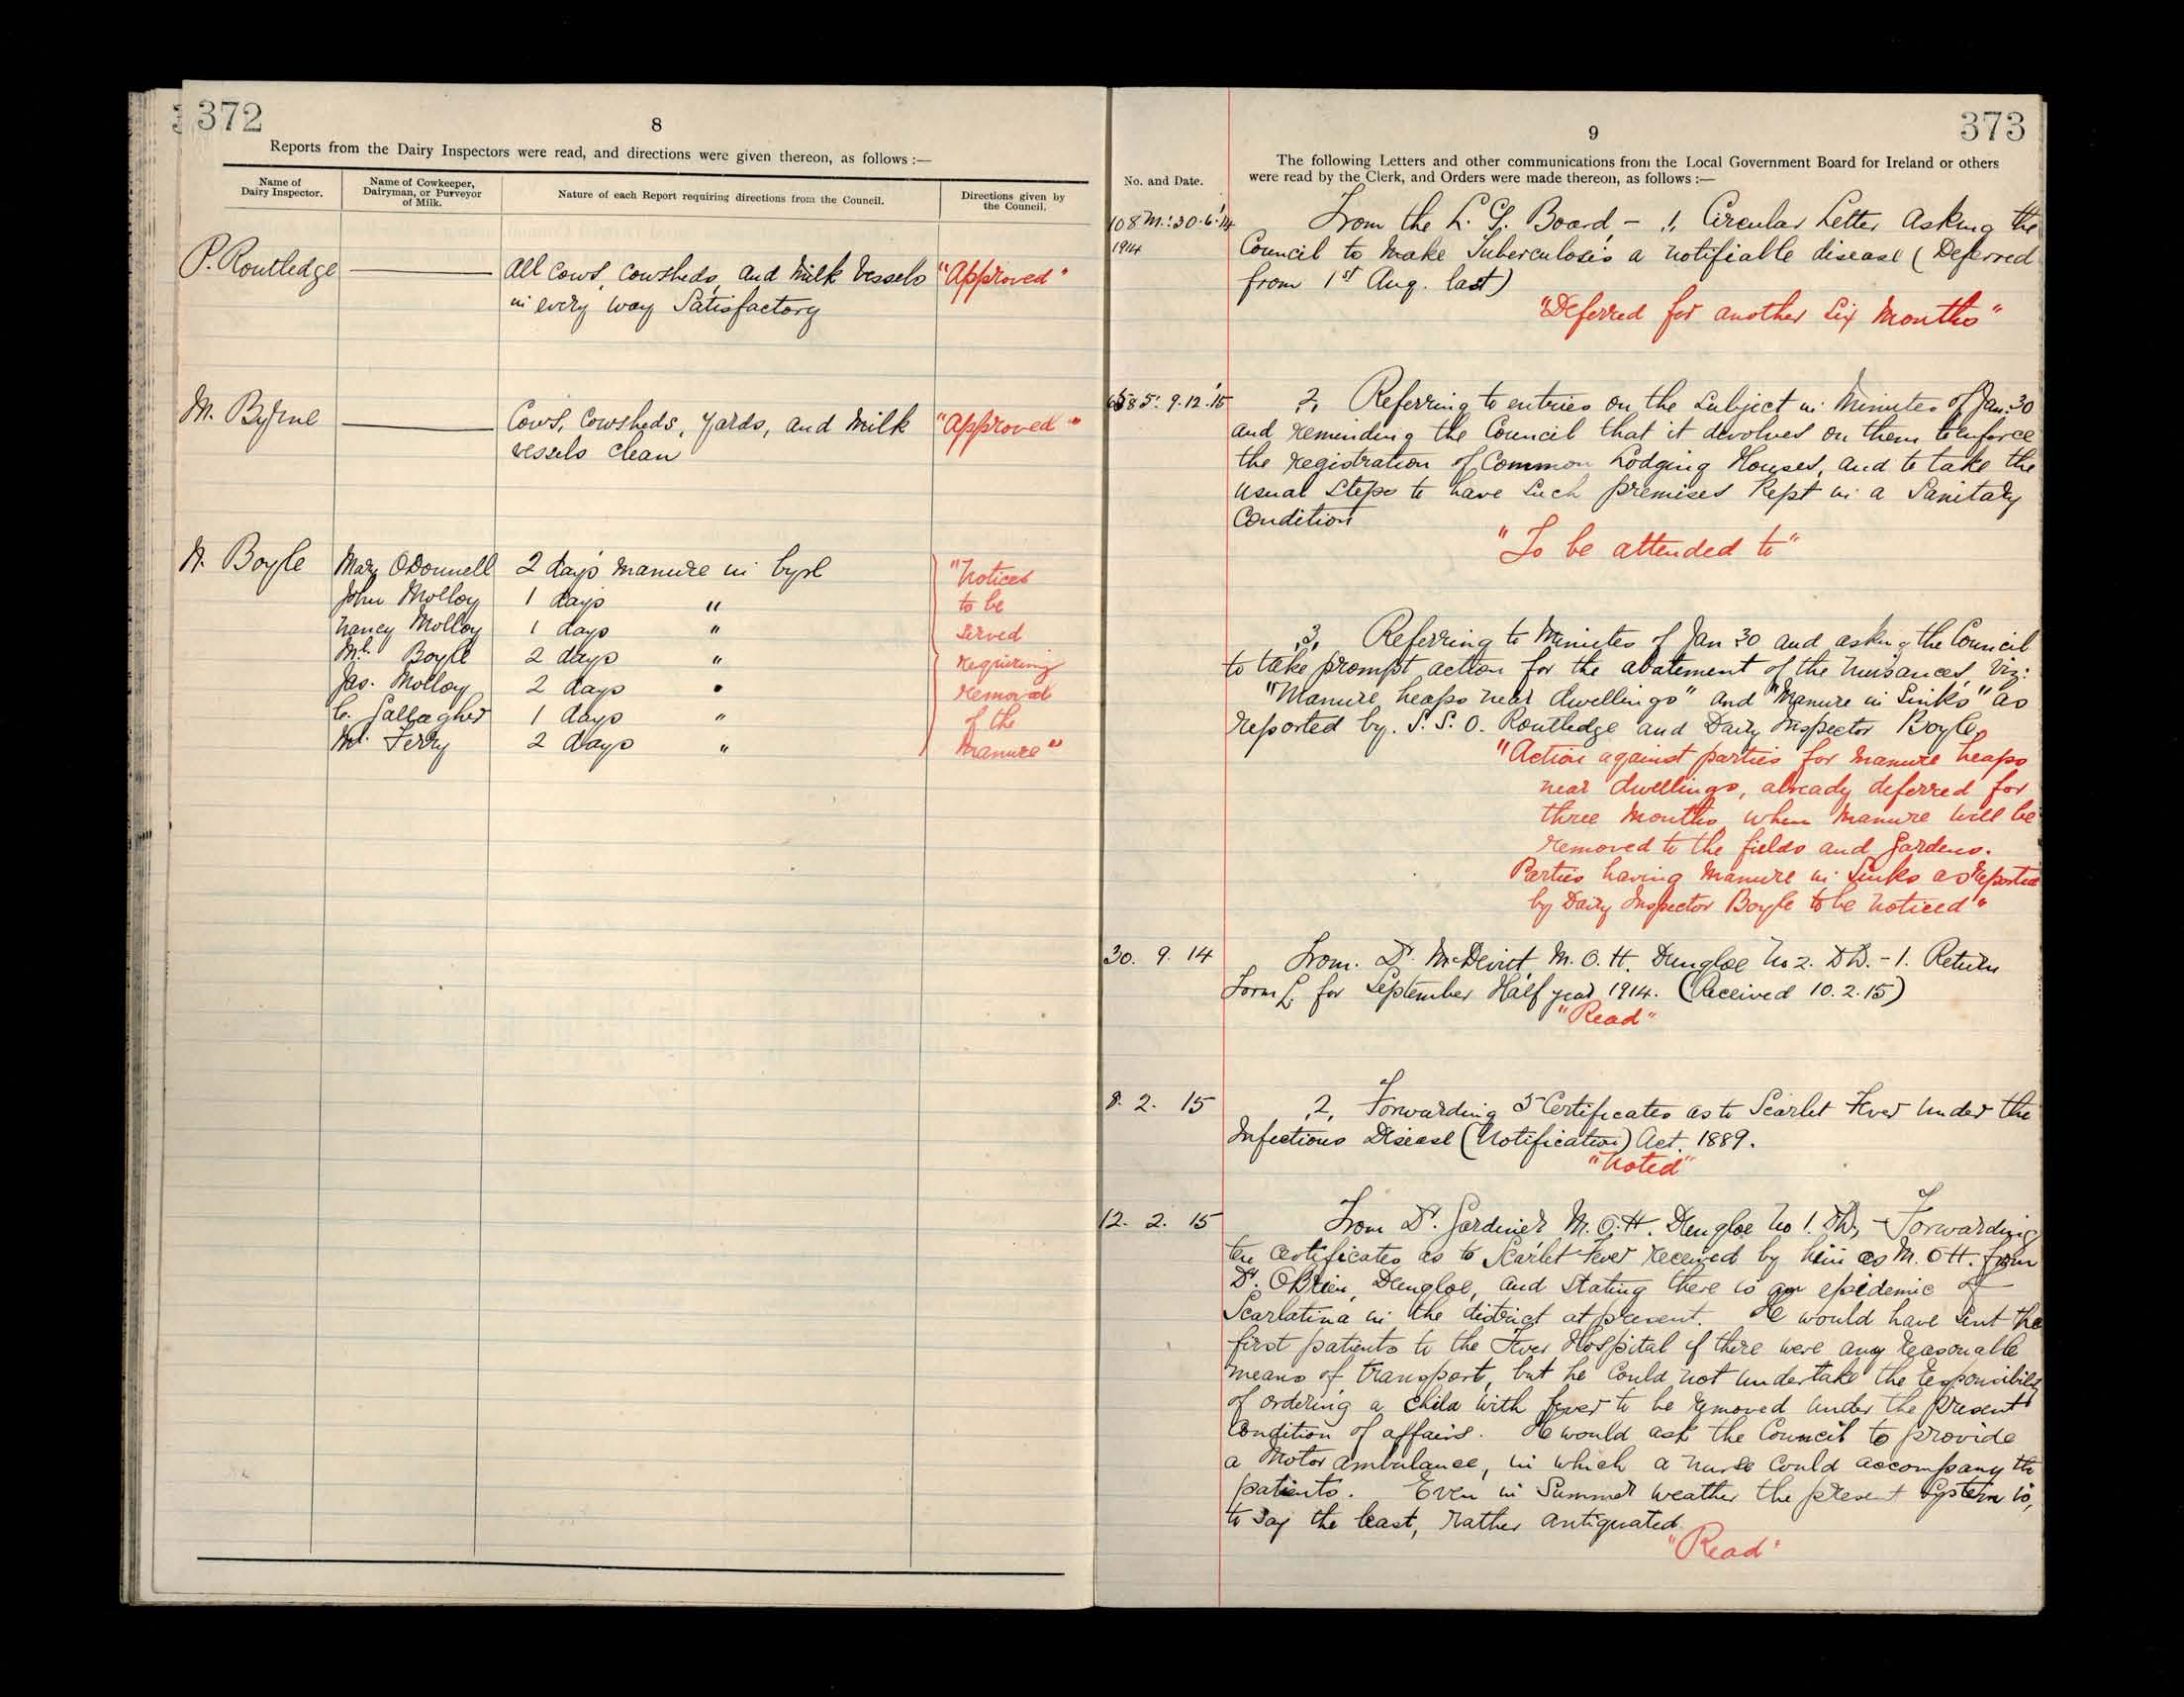 372
8
Reports from the Dairy Inspectors were read, and directions were given thereon, as follows :—
Name of Dairy Inspector.
Name of Cowkeeper, Dairyman, or Purveyor of Milk.
Nature of each Report requiring directions from the Council.
Directions given by the Council.
P. Routledge ——— All Cows, Cowsheds, and Milk Vessels "Approved"
in every way Satisfactory
M. Byrne ——— Cows, Cowsheds, Yards, and Milk "Approved"
vessels clean
N. Boyle Mary ODonnell 2 days manure in byre "Notices
John Molloy 1 days " to be
Nancy Molloy 1 days " served
Ml. Boyle 2 days " requiring
Jas. Molloy 2 days " removal
C. Gallagher 1 days " of the
Ml. Ferry 2 days " Manure"
373
9
The following Letters and other communications from the Local Government Board for Ireland or others
were read by the Clerk, and Orders were made thereon, as follows :—
No. and Date.
108 M: 30.6.'14 From the L. G. Board, - 1, Circular Letter asking the
1914 Council to make Tuberculosis a notifiable disease (Deferred
from 1st Aug. last)
"Deferred for another Six Months"
9.12.'15 2, Referring to entries on the subject in Minutes of Jan. 30
and reminding the Council that it devolves on them to enforce
the registration of Common Lodging Houses, and to take the
usual steps to have such premises kept in a Sanitary
Condition
"To be attended to"
3, Referring to Minutes of Jan 30 and asking the Council
to take prompt action for the abatement of the nuisances, viz:
"Manure heaps near dwellings" and "Manure in Sinks" as
reported by S. S. O. Routledge and Dairy Inspector Boyle,
"Action against parties for manure heaps
near dwellings, already deferred for
three months, when manure will be
removed to the fields and gardens.
Parties having manure in Sinks as reported
by Dairy Inspector Boyle to be noticed"
30. 9. 14 From. Dr. McDevitt, M. O. H. Dungloe No 2. D D. - 1. Return
Form L for September Half year 1914. (Received 10.2.15)
"Read"
8. 2. 15 2, Forwarding 5 Certificates as to Scarlet Fever under the
Infectious Disease (Notification) Act. 1889.
"Noted"
12. 2. 15 From Dr. Gardiner M. O. H. Dungloe No 1. DD, - Forwarding
ten certificates as to Scarlet Fever received by him as M. O H. from
Dr. OBrien, Dungloe, and stating there is an epidemic of
Scarlatina in the district at present. He would have sent the
first patients to the Fever Hospital if there were any reasonable
means of transport, but he could not undertake the responsibility
of ordering a child with fever to be removed under the present
condition of affairs. He would ask the Council to provide
a Motor ambulance, in which a nurse could accompany the
patients. Even in Summer weather the present System is,
to say the least, rather antiquated.
"Read"